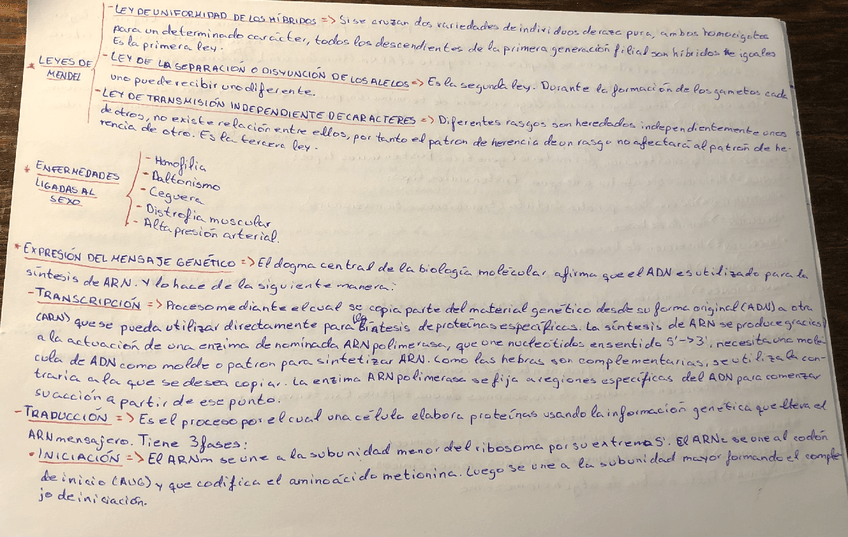 - LEY DE UNIFORMIDAD DE LOS HÍBRIDOS => Si se cruzan dos variedades de individuos de raza pura, ambos homocigotos
para un determinado carácter, todos los descendientes de la primera generación filial son híbridos e iguales
Es la primera ley.
* LEYES DE MENDEL
- LEY DE LA SEPARACIÓN O DISYUNCIÓN DE LOS ALELOS => Es la segunda ley. Durante la formación de los gametos cada
uno puede recibir uno diferente.
- LEY DE TRANSMISIÓN INDEPENDIENTE DE CARACTERES => Diferentes rasgos son heredados independientemente unos
de otros, no existe relación entre ellos, por tanto el patron de herencia de un rasgo no afectará al patrón de he-
rencia de otro. Es la tercera ley.
* ENFERMEDADES
LIGADAS AL
SEXO
- Hemofilia
- Daltonismo
- Ceguera
- Distrofia muscular
- Alta presión arterial.
* EXPRESIÓN DEL MENSAJE GENÉTICO => El dogma central de la biología molecular afirma que el ADN es utilizado para la
síntesis de ARN. Y lo hace de la siguiente manera:
- TRANSCRIPCIÓN => Proceso mediante el cual se copia parte del material genético desde su forma original (ADN) a otra
(ARN) que se pueda utilizar directamente para la síntesis de proteínas específicas. La síntesis de ARN se produce gracias
a la actuación de una enzima denominada ARN polimerasa, que une nucleotidos en sentido 5'->3', necesita una molé-
cula de ADN como molde o patron para sintetizar ARN. Como las hebras son complementarias, se utiliza la con-
traria a la que se desea copiar. La enzima ARN polimerasa se fija a regiones específicas del ADN para comenzar
su acción a partir de ese punto.
- TRADUCCIÓN => Es el proceso por el cual una célula elabora proteínas usando la información genética que lleva el
ARN mensajero. Tiene 3 fases:
• INICIACIÓN => El ARNm se une a la subunidad menor del ribosoma por su extremo 5'. El ARNt se une al codón
de inicio (AUG) y que codifica el aminoácido metionina. Luego se une a la subunidad mayor formando el comple-
jo de iniciación.